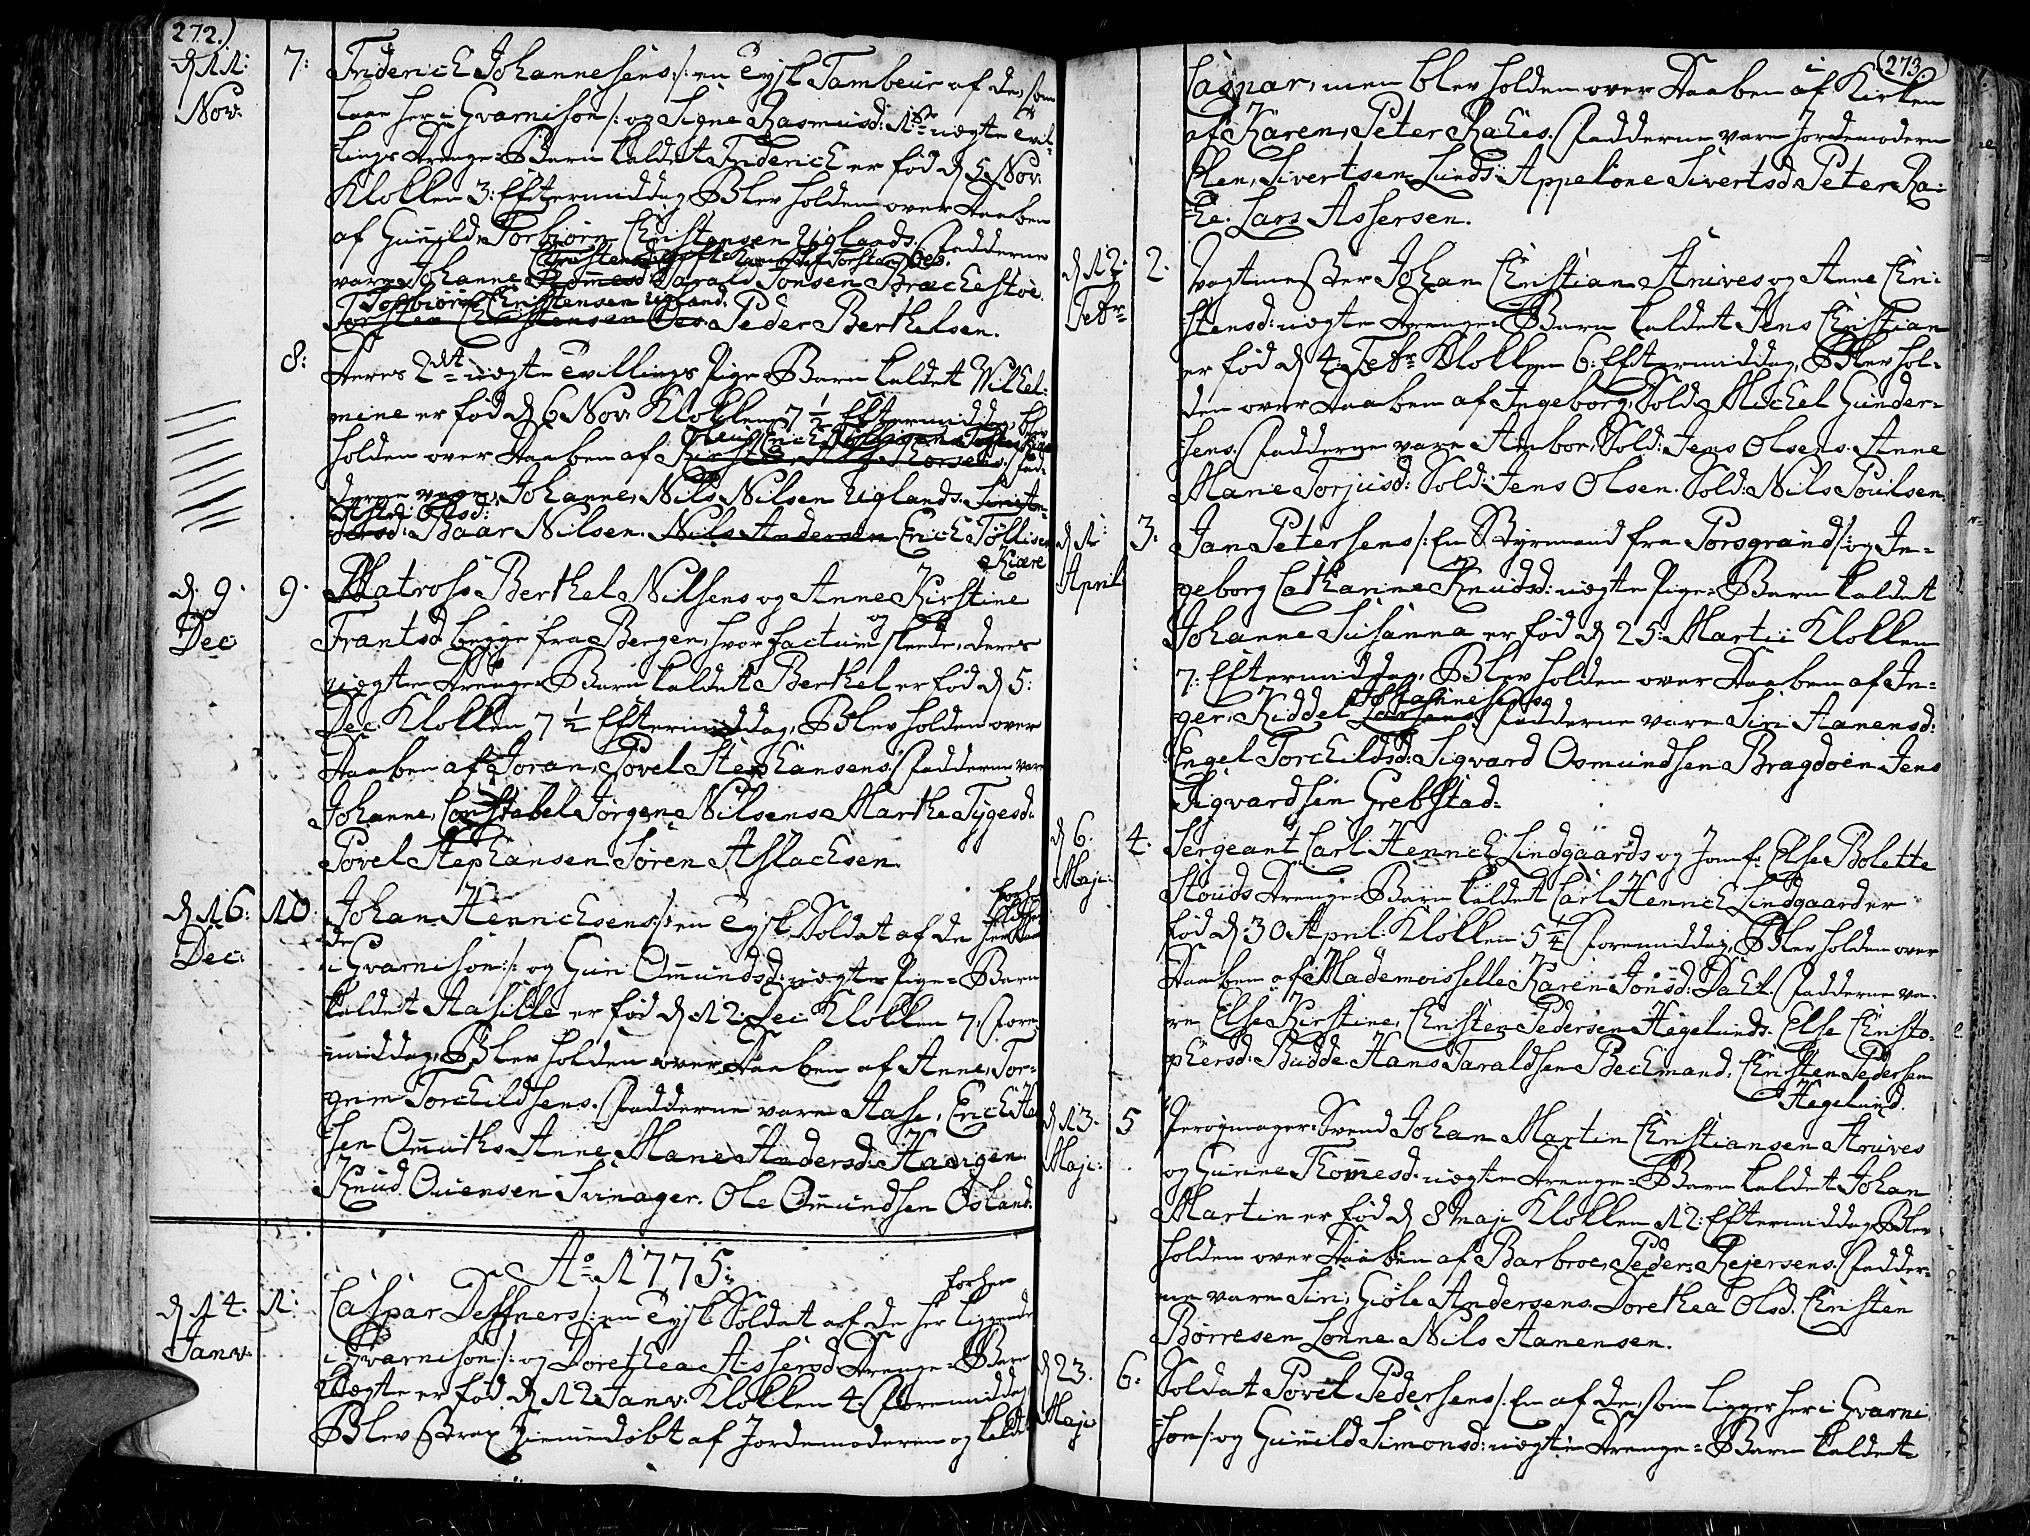 272.)
d 11: 7: Friderich Johannesens /: en Tydsk Tambeur af de, som
Nov: laae her i Gvarnison :/ og Signe Rasmusd: 1ste uægte Tvil-
lings Drenge-Barn kaldet Friderich er fød d 5 Nov.
Klokken 3: Eftermiddag, Blev holden over Daaben
af Gunild, Torbiorn Christensen Uglands. Fadderne
vare Johanne Tarald Jonsen Brækestøe.
Torbiørn Christensen Ugland.
Torsten Christensen Oes Peder Berthelsen.
8: Deres 2det uægte Tvillings Pige-Barn kaldet Vilhel-
mine er fød d 6 Nov Klokken 7 1/2 Eftermiddag, blev
holden over Daaben af
derne vare, Johanne, Nils Nilsen Uglands.
Baar Nilsen. Nils Andersen. Erich Tøllisen
Kiære
d. 9. 9. Matross Berthel Nilsens og Anne Kirstine
Dec Frantsd begge fra Bergen, hvor factum og skeede, deres
uægte Drenge-Barn kaldet Berthel er fød d 5:
Dec: Klokken 7 1/2 Eftermiddag, Blev holden over
Daaben af Joran, Povel Stephansens. Fadderne vare
Johanne, Constabel Jørgen Nilsens Marthe Tygesd:
Povel Stephansen. Søren Aslachsen.
d 16: 10 Johan Henrichsens /: en Tydsk Soldat af de her
Dec: i Gvarnison :/ og Guri Omundsd: uægte Pige-Barn
kaldet Aasille er fød d 12 Dec: Klokken 7, Fore-
middag, Blev holden over Daaben af Anne, Tor-
grim Torchildsens. Fadderne vare Aase, Erich
sen Omuths Anne Marie Andersd: Haugen.
Knud Ouensen Svinager. Ole Omundsen Osland.
Ao 1775:
d 14. 1: Caspar Deffners /: en Tydsk Soldat af de her liggende
Janv. i Gvarnison :/ og Dorethea Assersd Drenge-Barn
uægte er fød d 12 Janv: Klokken 4. Foremiddag
Blev strax Hiemmedøbt af Jordemoderen og kaldet
273.
Caspar, men blev holden over Daaben i af Kirken
af Karen, Peter Raches. Fadderne vare Jordemoderen
Elen, Sivertsen Lunds. Appelone Sivertsd. Peter Ra-
che. Lars Assersen.
d 12. 2. Vagtmester Johan Christian Struves og Anne Chri-
Febr: stensd: uægte Drenge-Barn kaldet Jens Christian
er fød d 4. Febr Klokken 6: Eftermiddag, Blev hol-
den over Daaben af Ingeborg, Sold Michel Gunder-
sens. Fadderne vare Anbor, Sold: Jens Olsens. Anne
Marie Torjusd: Sold: Jens Olsen. Sold: Nils Poulsen.
d 1: 3: Jan Petersens /: En Styrmand fra Porsgrund :/ og In-
April geborg Catharine Knudsd: uægte Pige-Barn kaldet
Johanne Susanna er fød d 25: Martii Klokken
7: Eftermiddag, Blev holden over Daaben af In-
ger, Kiddel Johannesens. Fadderne vare Siri Aanensd:
Engel Torchildsd: Sigvard Osmundsen Bragdøen. Jens
Sigvardsen Grebstad.
d 6. 4. Sergeant Carl Henrich Lindgaards og Jomf: Else Bolette
Maji: Stouds Drenge-Barn kaldet Carl Henrich Lindgaard er
fød d. 30 April Klokken 5 1/4 Foremiddag, Blev holden over
Daaben af Mademoisselle Karen Jonsd: Dahl. Fadderne va-
re Else Kirstine, Christen Pedersen Hegelunds. Else Christo-
phersd: Budde. Hans Taraldsen Bechmand. Christen Pedersen
Hegelund.
d 13. 5 Peroqmager-Svend Johan Martin Christiansen Struves
Maji: og Gunne Thomesd: uægte Drenge-Barn kaldet Johan
Martin er fød d 8 Maji Klokken 12: Eftermiddag, Blev
holden over Daaben af Barbroe, Peder Rejersens. Fadder-
ne vare Siri, Giøle Andersens. Dorethea Olsd. Christen
Børresen Lonne. Nils Aanensen.
d 23. 6: Soldat Povel Pedersens /: En af de, som ligger her i Gvarni-
Maji son :/ og Gunild Simonsd: uægte Drenge-Barn kaldet